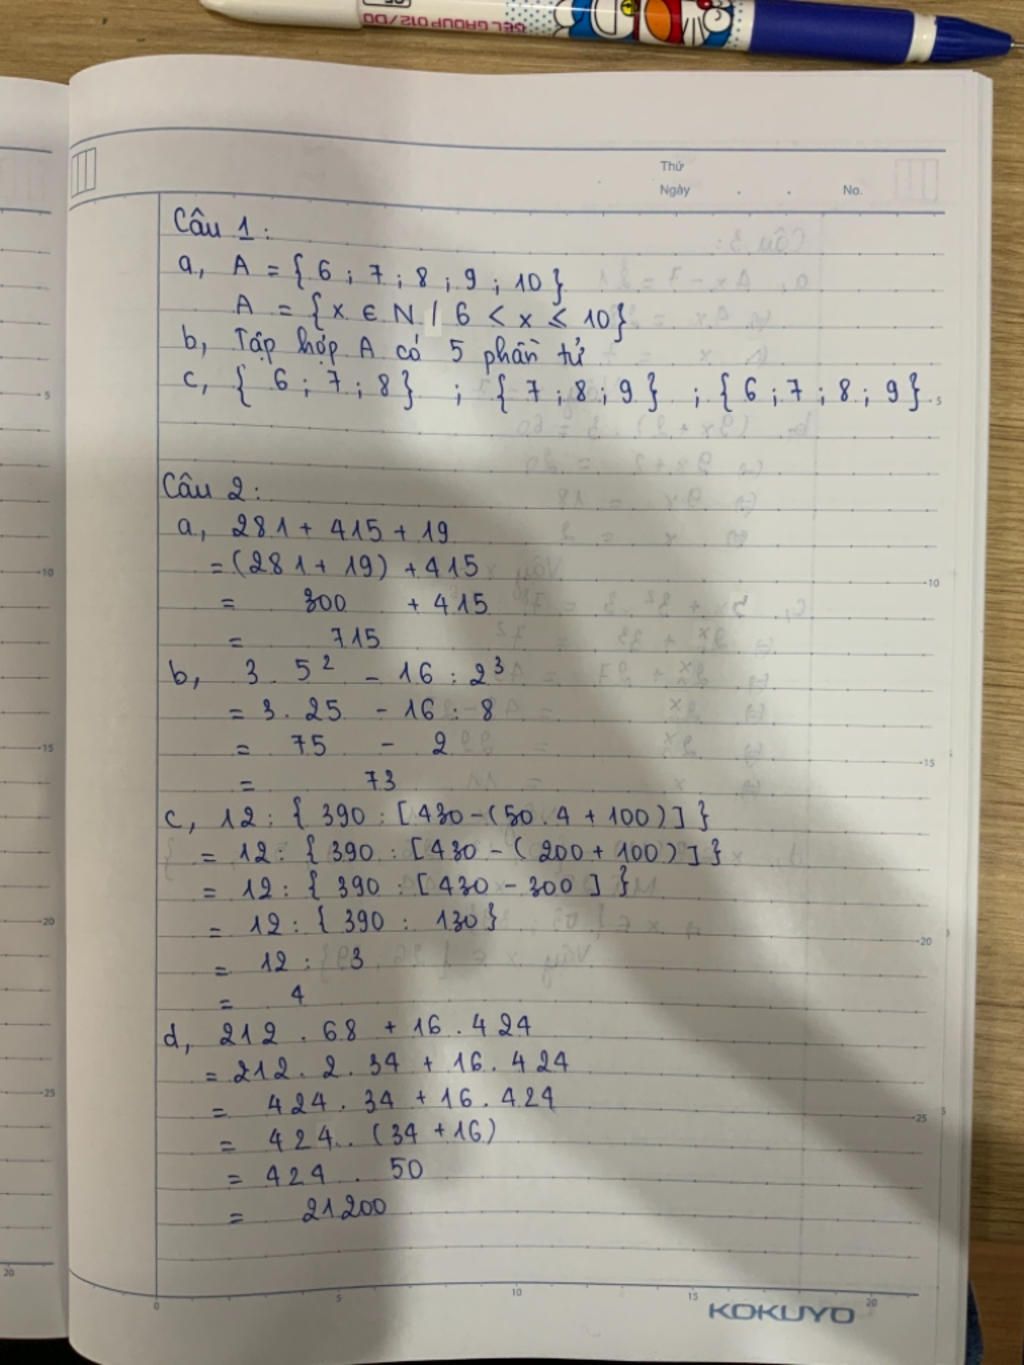 GEL GROUP 012/DO
Thứ
Ngày . . No.
Câu 1:
a, A = { 6 ; 7 ; 8 ; 9 ; 10 }
A = { x ∈ N / 6 < x ≤ 10 }
b, Tập hợp A có 5 phần tử
c, { 6 ; 7 ; 8 } ; { 7 ; 8 ; 9 } ; { 6 ; 7 ; 8 ; 9 }
Câu 2:
a, 281 + 415 + 19
= (281 + 19) + 415
= 300 + 415
= 715
b, 3 . 5² - 16 : 2³
= 3 . 25 - 16 : 8
= 75 - 2
= 73
c, 12 : { 390 : [430 - (50 . 4 + 100)] }
= 12 : { 390 : [430 - (200 + 100)] }
= 12 : { 390 : [430 - 300] }
= 12 : { 390 : 130 }
= 12 : 3
= 4
d, 212 . 68 + 16 . 424
= 212 . 2 . 34 + 16 . 424
= 424 . 34 + 16 . 424
= 424 . (34 + 16)
= 424 . 50
= 21200
0 5 10 15 20
KOKUYO